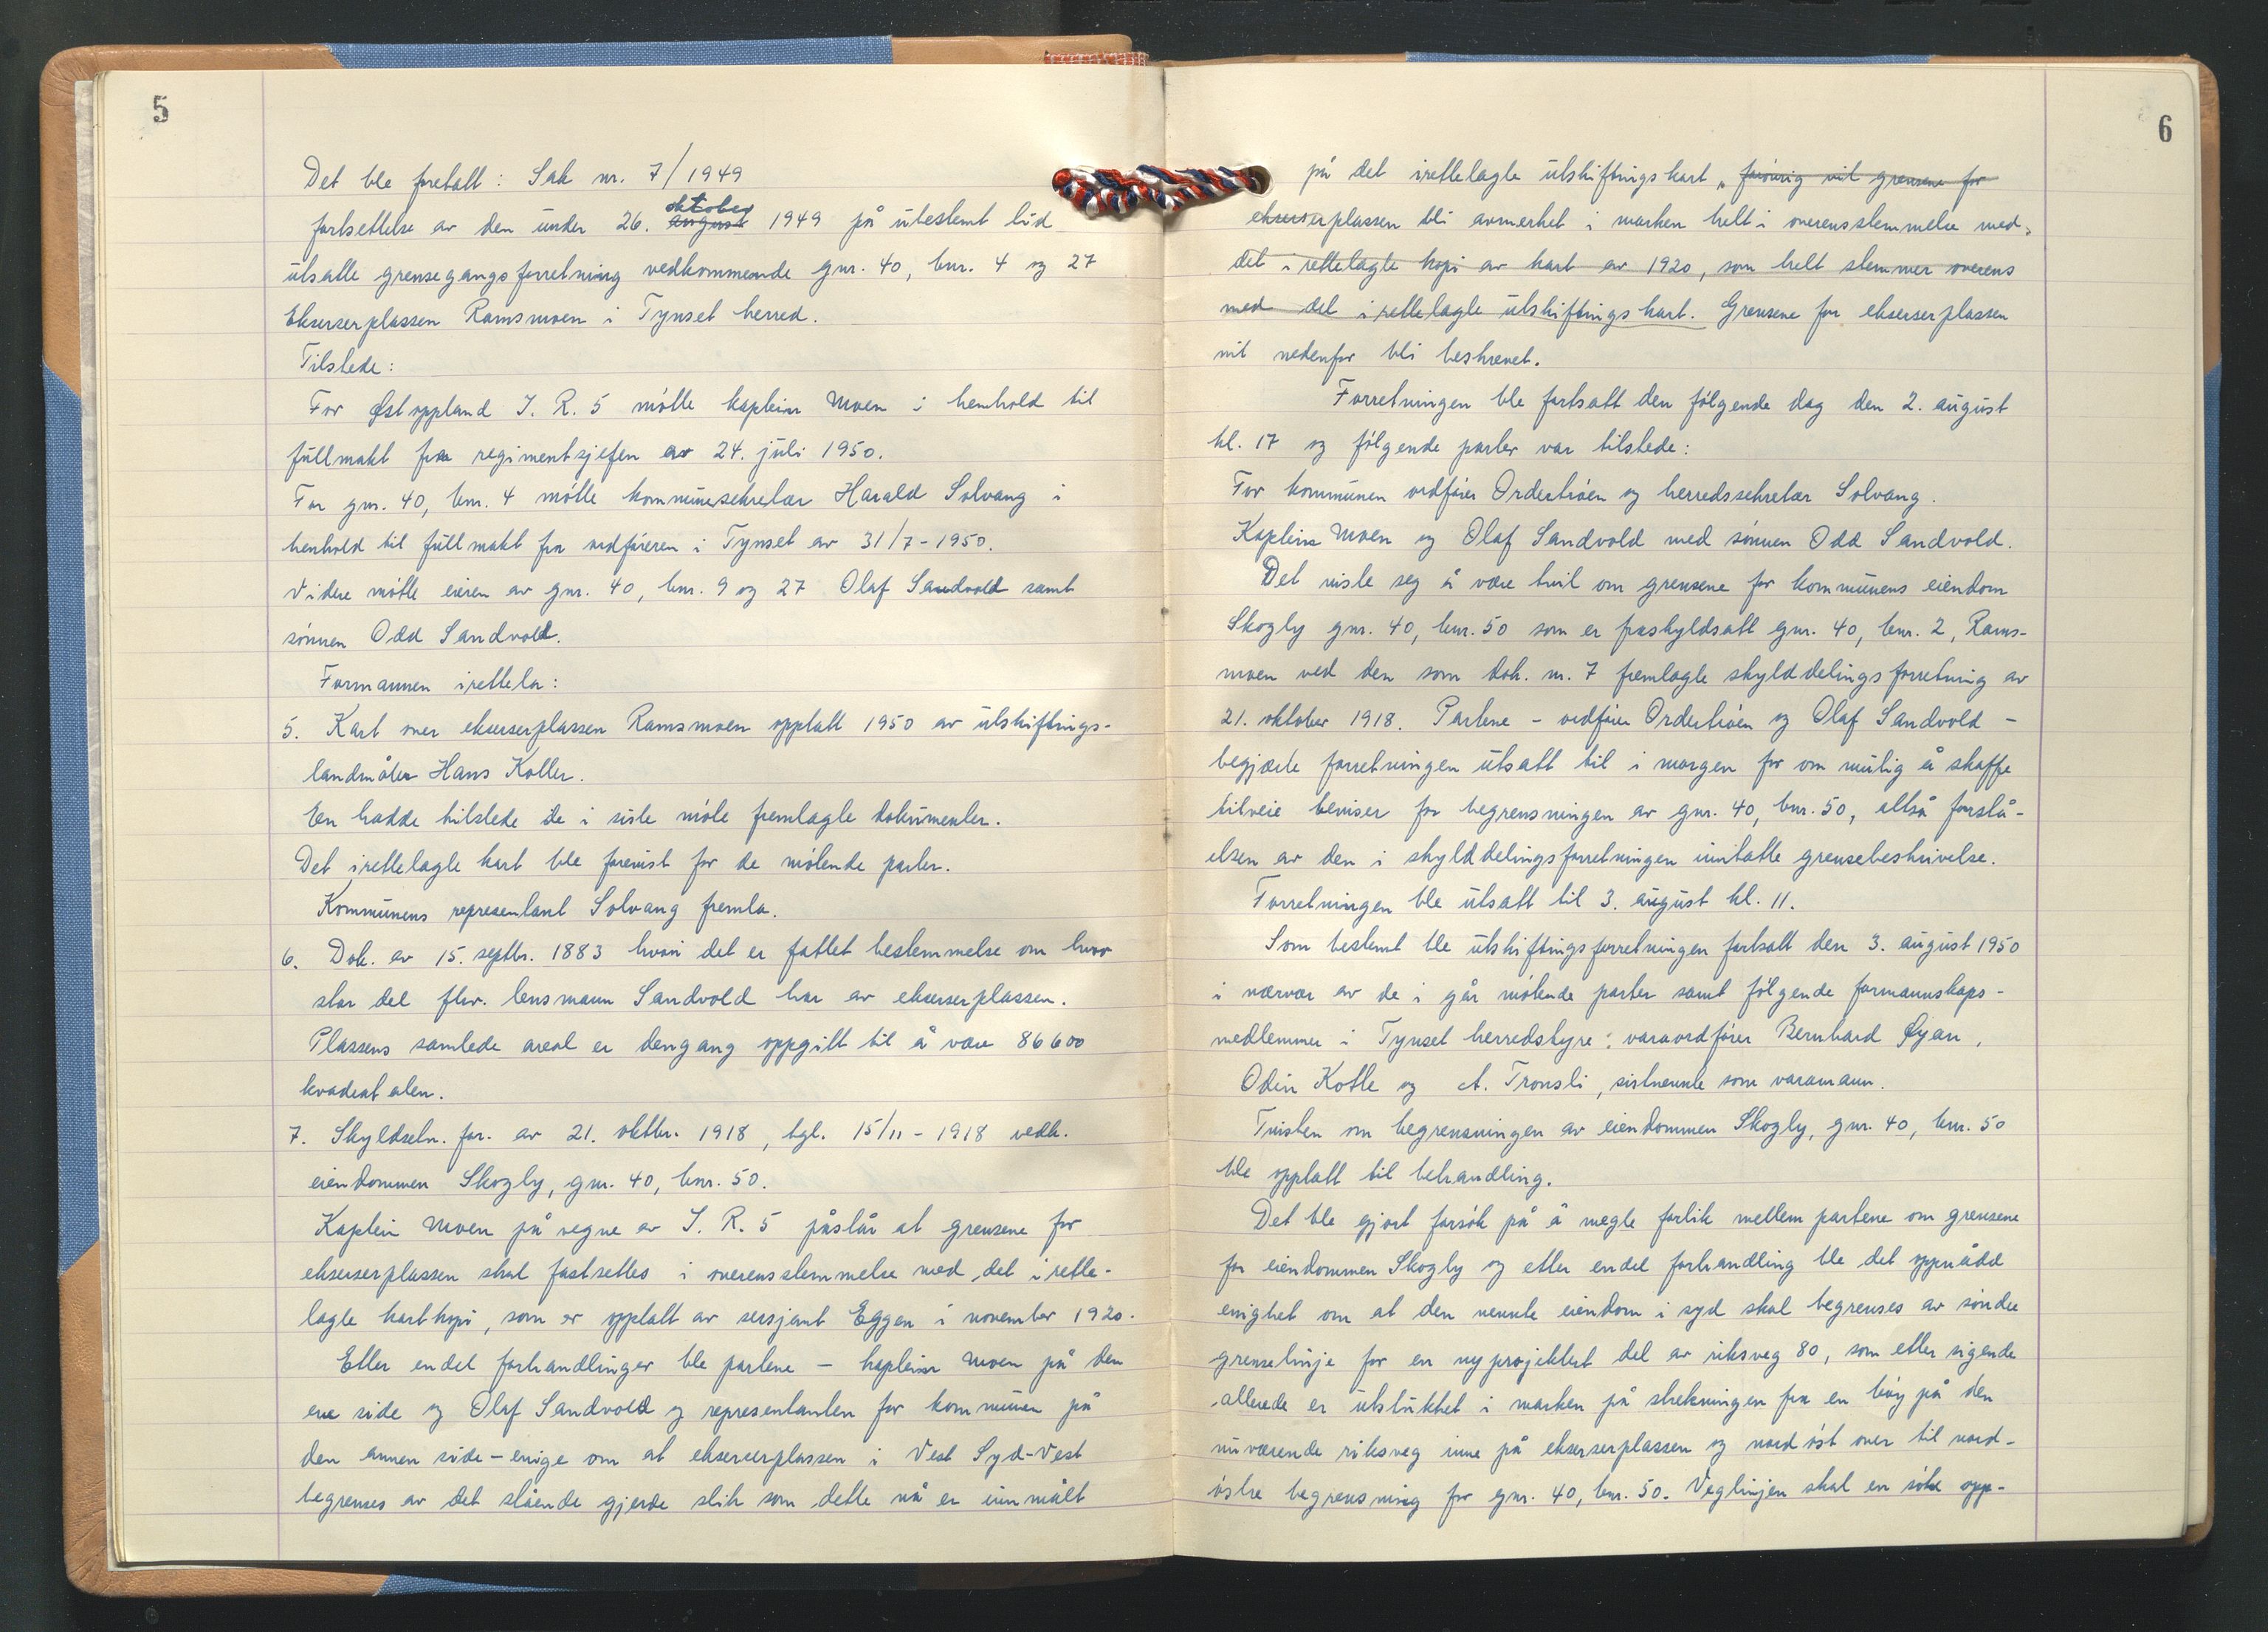 5
Det ble foretatt: Sak nr. 7/1949
fortsettelse av den under 26. ~~august~~ oktober 1949 på ubestemt tid
utsatte grensegangsforretning vedkommende gnr. 40, bnr. 4 og 27
Ekserserplassen Ramsmoen i Tynset herred.
Tilstede:
For Østoppland I. R. 5 møtte kaptein Moen i henhold til
fullmakt fra regimentsjefen av 24. juli 1950.
For gnr. 40, bnr. 4 møtte kommunesekretær Harald Solvang i
henhold til fullmakt fra ordføreren i Tynset av 31/7-1950.
Videre møtte eieren av gnr. 40, bnr. 9 og 27 Olaf Sandvold samt
sønnen Odd Sandvold.
Formannen irettela:
5. Kart over ekserserplassen Ramsmoen opptatt 1950 av utskiftnings-
landmåler Hans Koller.
En hadde tilstede de i siste møte fremlagte dokumenter.
Det irettelagte kart ble forevist for de møtende parter.
Kommunens representant Solvang fremla.
6. Dok. av 15. septbr. 1883 hvori det er fattet bestemmelse om hvor
stor del fhv. lensmann Sandvold har av ekserserplassen.
Plassens samlede areal er dengang oppgitt til å være 86600
kvadrat alen.
7. Skyldseln. for. av 21. oktbr. 1918, tgl. 15/11-1918 vedk.
eiendommen Skogly, gnr. 40, bnr. 50.
Kaptein Moen på vegne av I. R. 5 påstår at grensene for
ekserserplassen skal fastsettes i overensstemmelse med det i rette-
lagte kartkopi, som er opptatt av sersjant Eggen i november 1920.
Etter endel forhandlinger ble partene - kaptein Moen på den
ene side og Olaf Sandvold og representanten for kommunen på
den annen side - enige om at ekserserplassen i Vest Syd-Vest
begrenses av det stående gjerde slik som dette nå er innmålt
6
på det irettelagte utskiftningskart „ ~~forøvrig vil grensene for~~
~~ekserserplassen bli avmerket i marken helt i overensstemmelse med~~
~~det i rettelagte kopi av kart av 1920, som helt stemmer overens~~
~~med det i rettelagte utskiftningskart.~~ Grensene for ekserserplassen
vil nedenfor bli beskrevet.
Forretningen ble fortsatt den følgende dag den 2. august
kl. 17 og følgende parter var tilstede:
For kommunen ordfører Ordertrøen og herredssekretær Solvang.
Kaptein Moen og Olaf Sandvold med sønnen Odd Sandvold.
Det viste seg å være tvil om grensene for kommunens eiendom
Skogly gnr. 40, bnr. 50 som er fraskyldsatt gnr. 40, bnr. 2, Rams-
moen ved den som dok. nr. 7 fremlagte skylddelingsforretning av
21. oktober 1918. Partene - ordfører Ordertrøen og Olaf Sandvold -
begjærte forretningen utsatt til i morgen for om mulig å skaffe
tilveie beviser for begrensningen av gnr. 40, bnr. 50, altså forstå-
elsen av den i skylddelingsforretningen inntatte grensebeskrivelse.
Forretningen ble utsatt til 3. august kl. 11.
Som bestemt ble utskiftningsforretningen fortsatt den 3. august 1950
i nærvær av de i går møtende parter samt følgende formannskaps-
medlemmer i Tynset herredstyre: varaordfører Bernhard Øyan,
Odin Kotte og A. Tronsli, sistnevnte som varamann.
Tvisten om begrensningen av eiendommen Skogly, gnr. 40, bnr. 50
ble opptatt til behandling.
Det ble gjort forsøk på å megle forlik mellem partene om grensene
for eiendommen Skogly og etter endel forhandling ble det oppnådd
enighet om at den nevnte eiendom i syd skal begrenses av søndre
grenselinje for en nyprojektert del av riksveg 80, som etter sigende
allerede er utstukket i marken på strekningen fra en bøy på den
nuværende riksveg inne på ekserserplassen og nordøst over til nord-
østre begrensning for gnr. 40, bnr. 50. Veglinjen skal en søke opp-